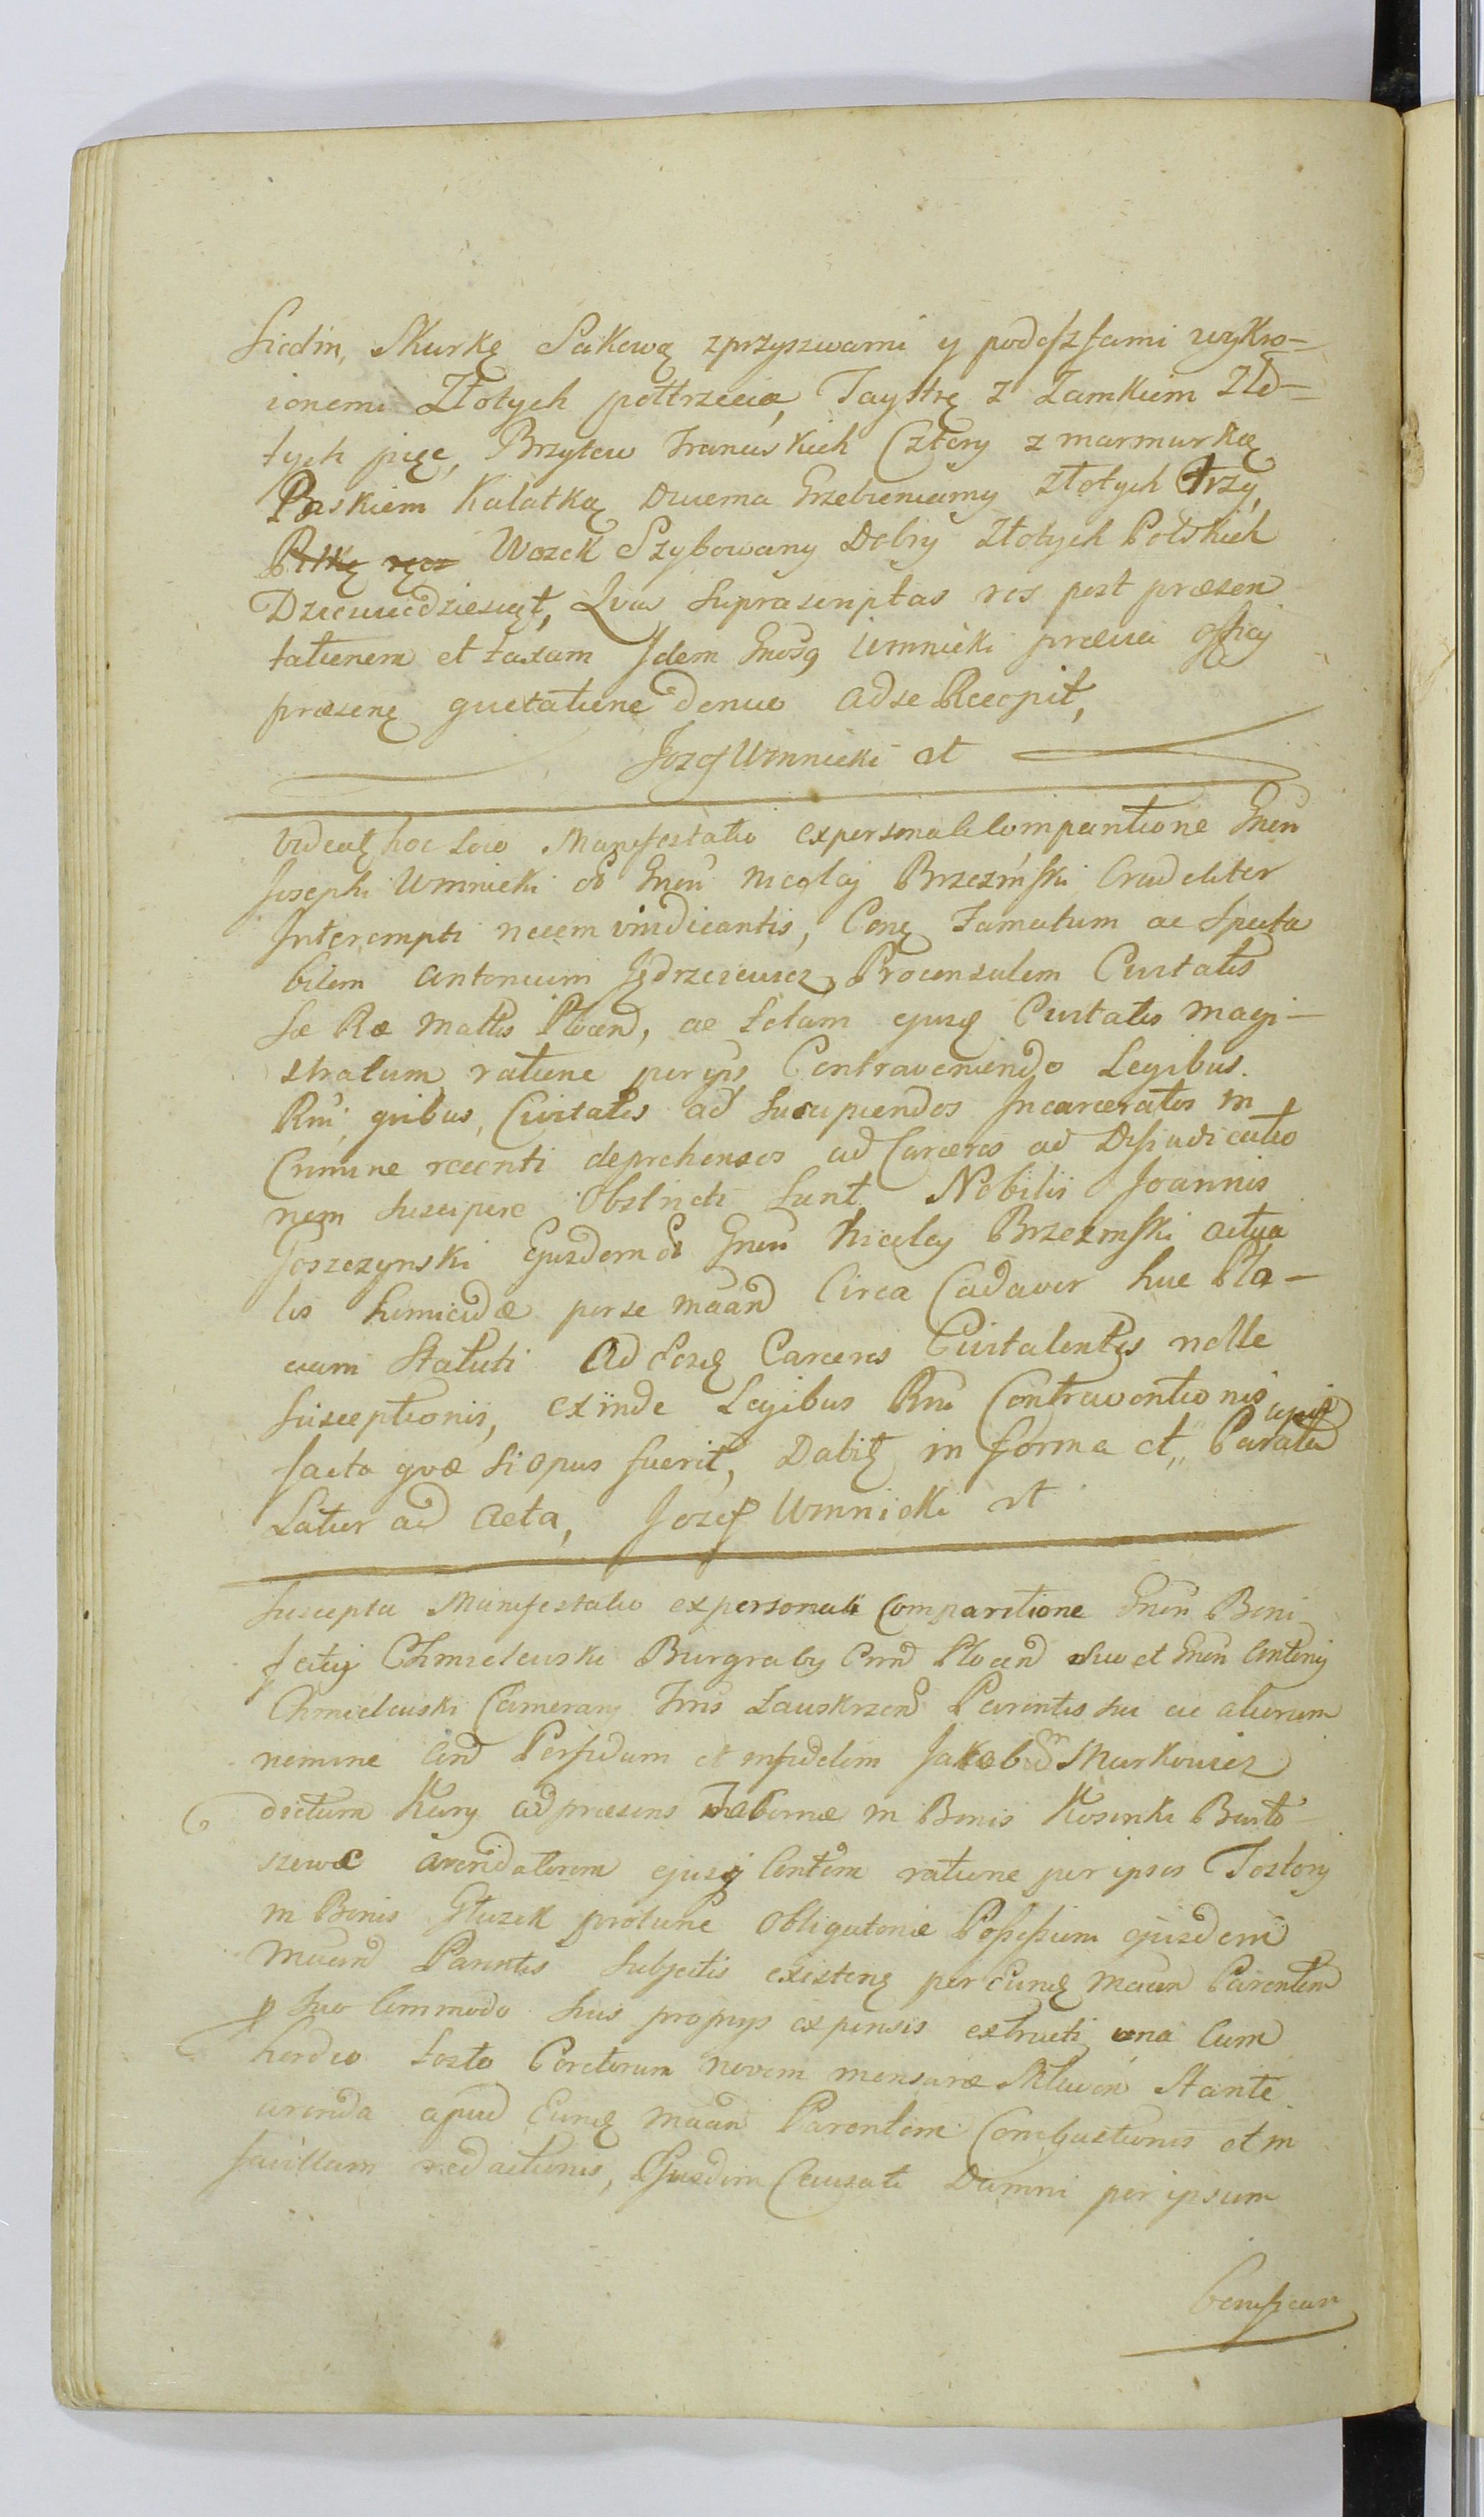 siedm, Skurkę Sakową zprzyszwami y podeszfami wykro-
ionemi Złotych połtrzecia, Taystrę z Zamkiem Zło-
tych pięc, Brzytew Francuskich Cztery z marmurką
Paskiem Kałatką Dwema Grzebieniamy złotych trzy,
Wozek Szybowany Dobry złotych Polskich
Dziewiedziesiąt, Qvas suprascriptas res post præsen
tationem et taxam Idem Gnosg Umnicki prævia officy
præsenę quetatione denuo ad se Recepit,
Jozef Umnicki xt
Videatę hoc loco Manifestatio expersonali Comparitione Gnen
Josephi Umnicki ol Gnen Nicolaj Brzezinski Crudeliter
Interempti necem vindicantis, Conę Famatum ac specta
bilem Antonium Jędrzeiewicz Proconsulem Civitatis
Sæ Ræ Mattis Plocen, ac totam ejusę Civitatis magi-
stratum ratione per ips Contraveniendo Legibus
Rni, qvibus, Civitates ad suscipiendos Incarceratos in
Crimine recenti deprehensos ad Carceres ad Disjudicatio
nem suscipere Obstricti sunt Nobilis Joannis
Goszczynski Ejusdem ol Gnen Nicolaj Brzezinski actua
lis homicidæ per se maand Circa Cadaver huc Plo-
ciam statuti Ad Eosę Carceres Civitatenses nolle
susceptionis, exinde Legibus Rni Contraventionis
facta qvæ si opus fuerit, Dabitę in forma et Parata
Latior ad Acta, Jozef Umnicki xt
Suscepta Manifestatio expersonali Comparitione Gnen Boni
facij Chmielewski Burgraby Crnd Plocend suo et Gnen Antonij
Chmielewski Camerarij Trris Zawskrzend Parentis sui ac aliorum
nomine Cind Perfidum et infidelem Jakob Markowicz
dictum Kary ad præsens Tabernæ in Bonis Kosinki Barto
szewæ arendatorem ejusę Contem ratione per ipsos Fostory
in Bonis Głuzek protunc Obligatoriæ Possessioni ejusdem
maand Parentis subjectis existenę per Eumę maan Parentem
p suo Commodo suis proprys expensis extructi una Cum
hordeo tosto Coretorum novem mensuræ Mlawen stante
arenda apud Eumę maan Parentem Combustionis et in
favillam redactionis, Ejusdem Causati Damni per ipsum